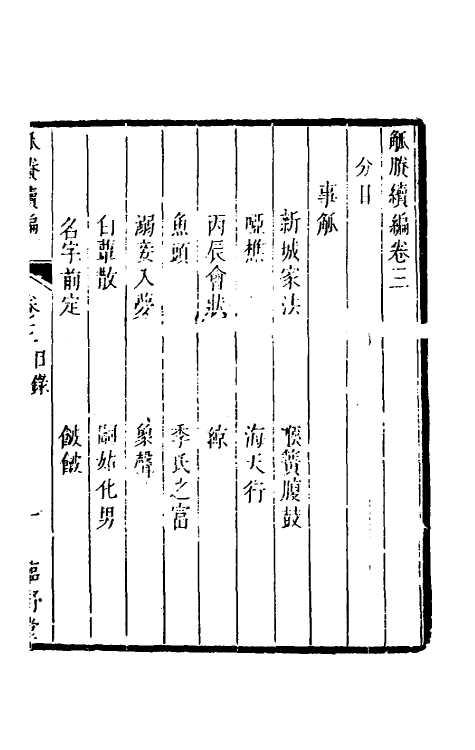 觚賸續編卷三
分目
事觚
新城家法
喉簧腹鼓
啞樵
海天行
丙辰會狀
線
魚頭
季氏之富
溺妾入夢
梟聲
白蕈散
嗣姑化男
名字前定
皴皴
觚賸續編
卷三目錄
一
臨野堂